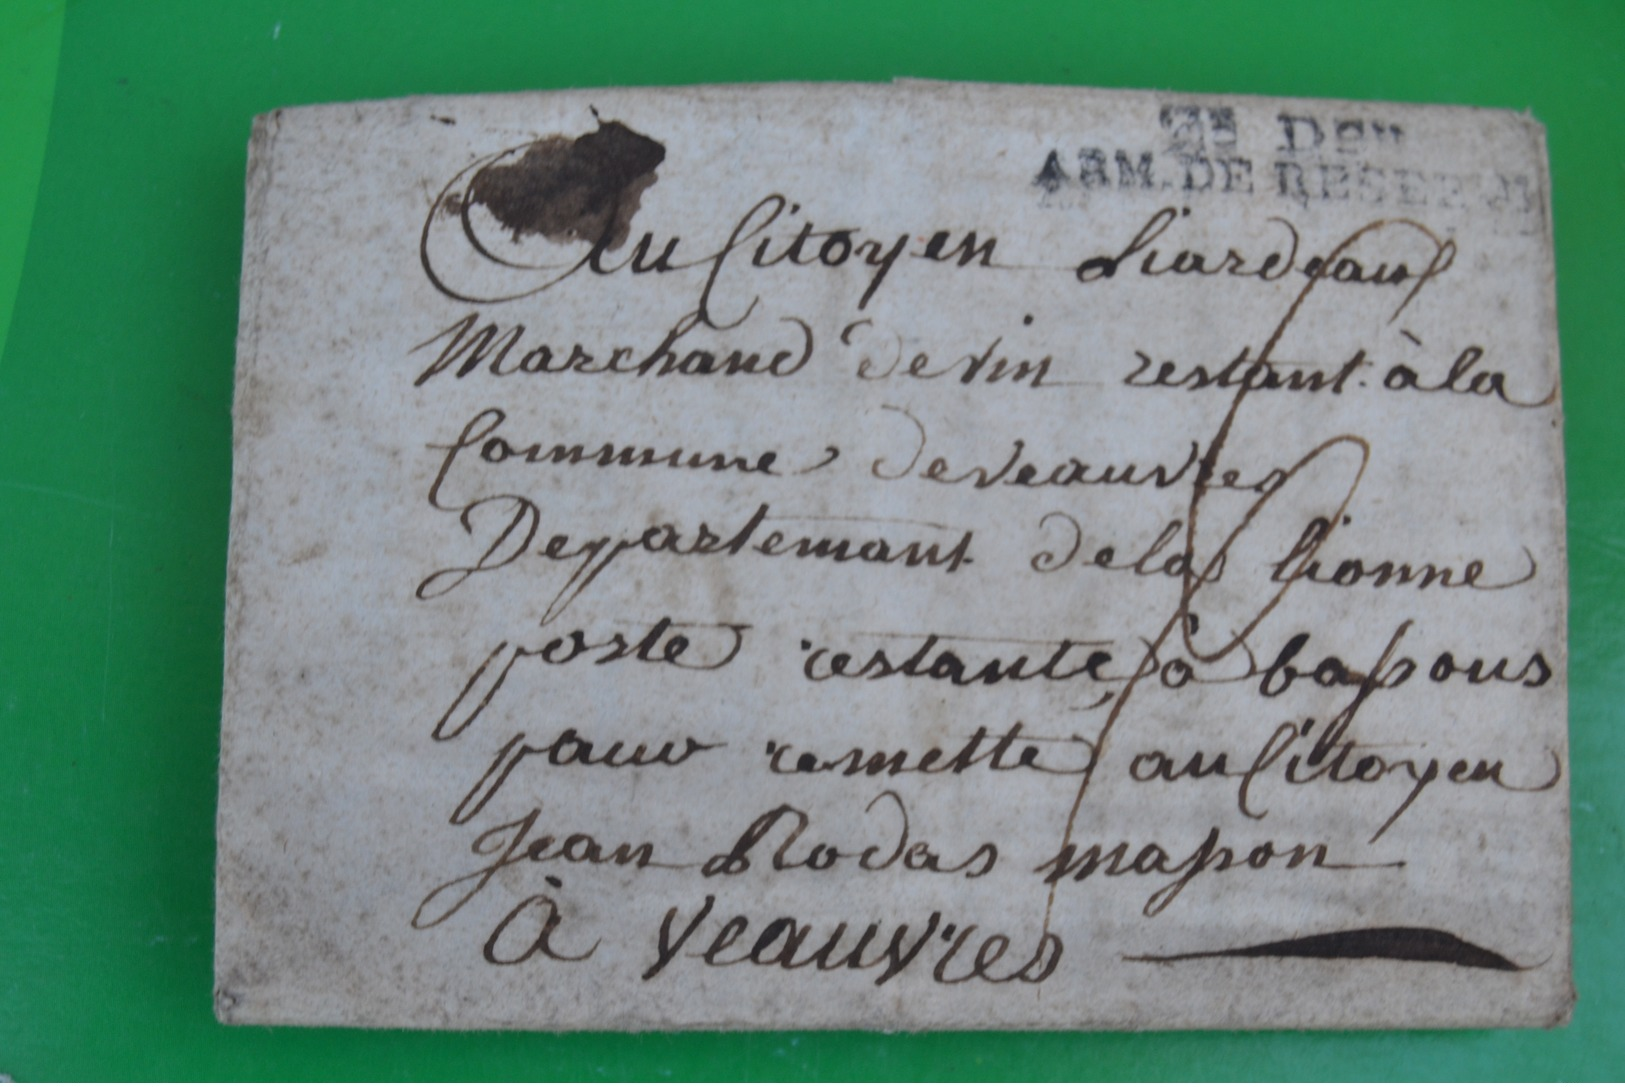 Dᵒⁿ
ARM. DE RESERVE
Au Citoyen Liardeaux
Marchand de vin restant à la
Commune de veauvres
Departemant de la lionne
poste restante à bassous
pour remette au Citoyen
Jean Rodas masson
à veauvres